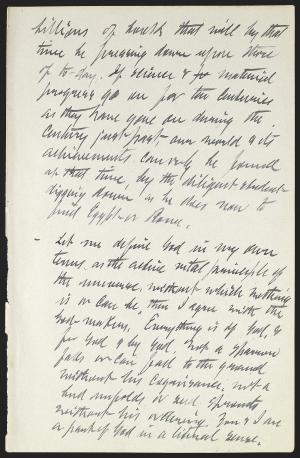 billions of books that will by that
time be pressing down upon those
of to-day. If science & material
progress go on for ten centuries
as they have gone on during the
century just past, our world & its
achievements can only be found
at that time, by the diligent student
digging down as he does now to
find Egypt or Rome.
- Let me define God in my own
terms as the active vital principle of
the universe, without which nothing
is or can be, then I agree with the
God-makers. Everything is of God, &
for God & by God. Not a sparrow
falls or can fall to the ground
without his cognizance, not a
bud unfolds or seed sprouts
without his ordering. You & I are
a part of God in a literal sense.